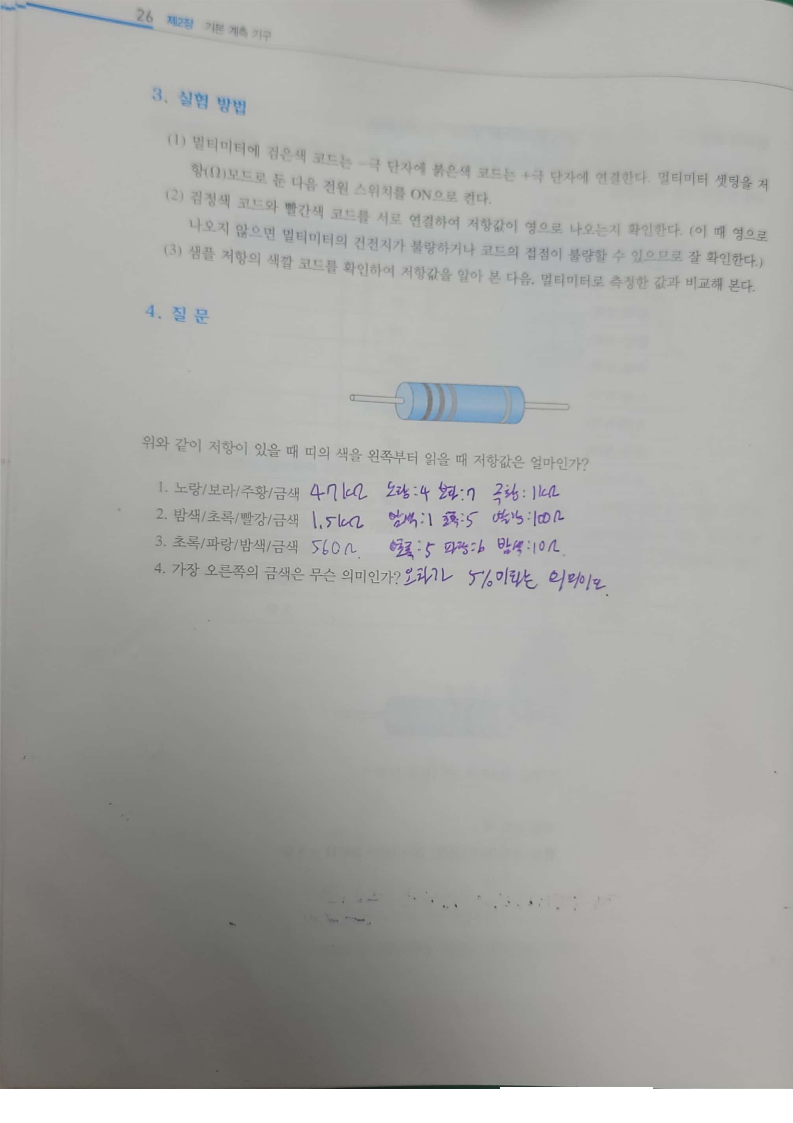 26 제2장 기본 계측 기구
3. 실험 방법
(1) 멀티미터에 검은색 코드는 −극 단자에 붉은색 코드는 +극 단자에 연결한다. 멀티미터 셋팅을 저
항(Ω)모드로 둔 다음 전원 스위치를 ON으로 켠다.
(2) 검정색 코드와 빨간색 코드를 서로 연결하여 저항값이 영으로 나오는지 확인한다. (이 때 영으로
나오지 않으면 멀티미터의 건전지가 불량하거나 코드의 접점이 불량할 수 있으므로 잘 확인한다.)
(3) 샘플 저항의 색깔 코드를 확인하여 저항값을 알아 본 다음, 멀티미터로 측정한 값과 비교해 본다.
4. 질 문
위와 같이 저항이 있을 때 띠의 색을 왼쪽부터 읽을 때 저항값은 얼마인가?
1. 노랑/보라/주황/금색 47kΩ 노랑:4 보라:7 주황:1kΩ
2. 밤색/초록/빨강/금색 1.5kΩ 밤색:1 초록:5 빨강:100Ω
3. 초록/파랑/밤색/금색 560Ω. 초록:5 파랑:6 밤색:10Ω.
4. 가장 오른쪽의 금색은 무슨 의미인가? 오차가 5%이라는 의미이다.